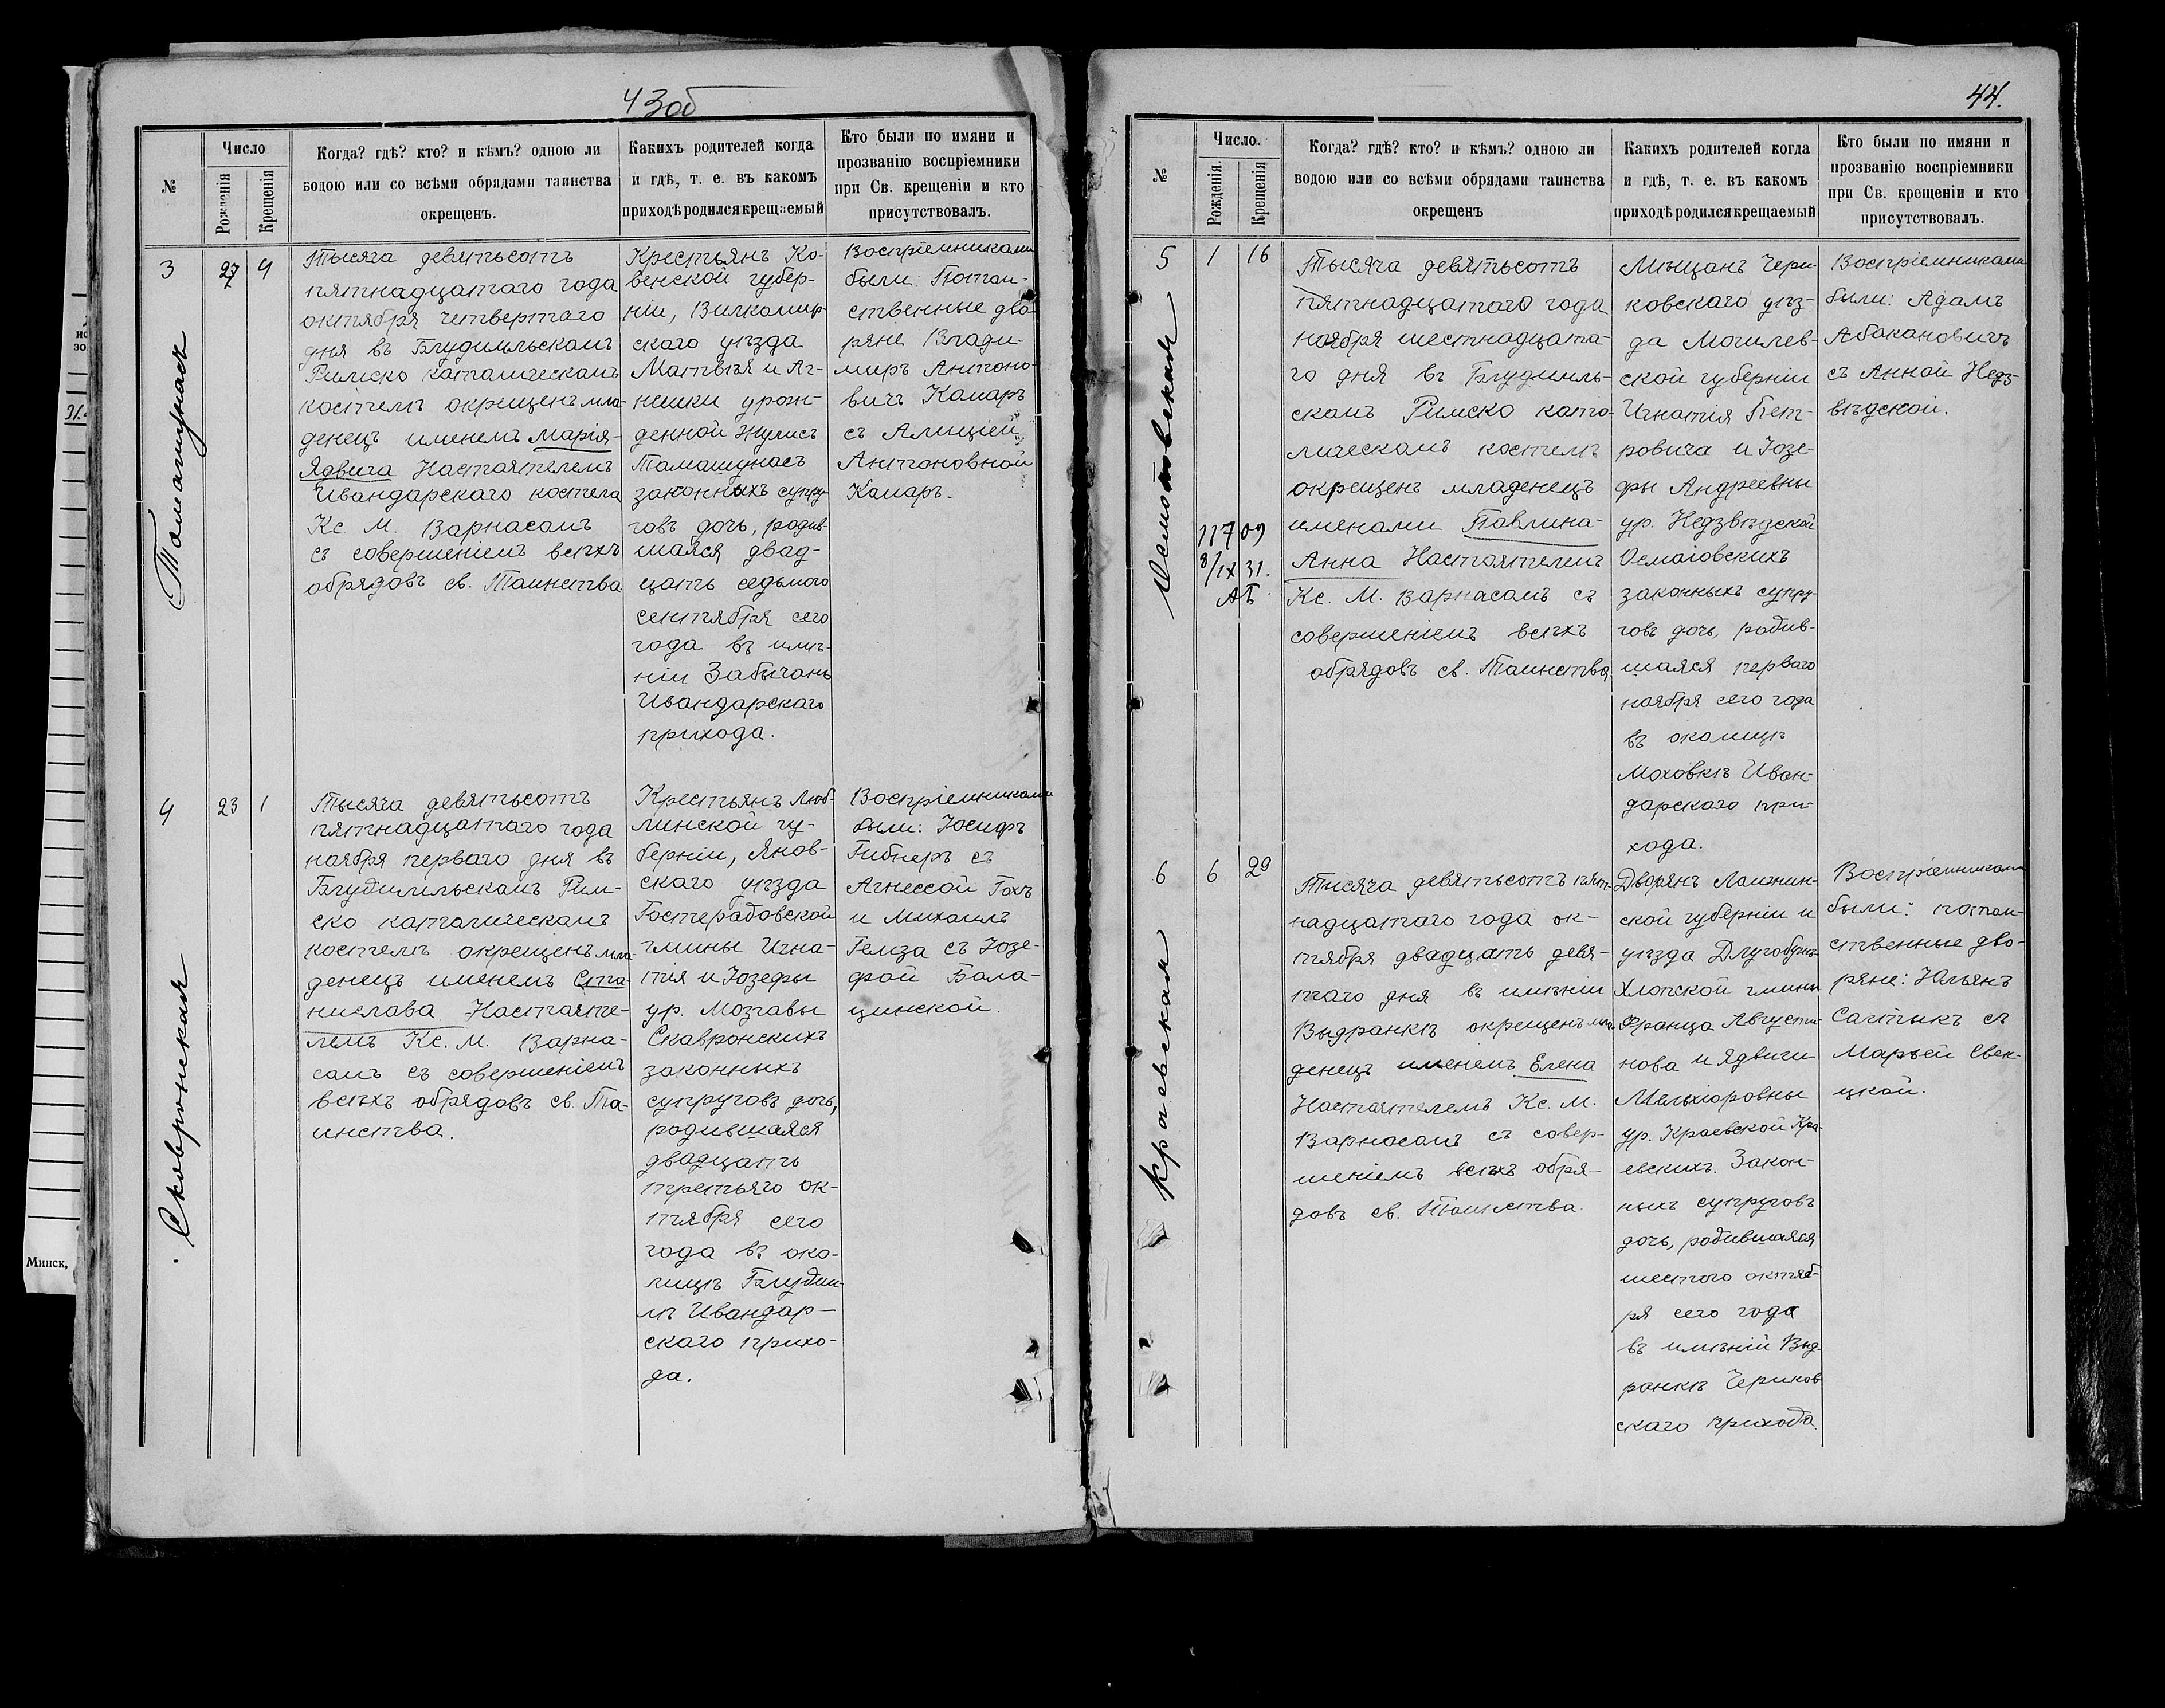 43об
№
Число
Рожденія
Крещенія
Когда? гдѣ? кто? и кѣмъ? одною ли
водою или со всѣми обрядами таинства
окрещенъ.
Какихъ родителей когда
и гдѣ, т. е. въ какомъ
приходѣ родился крещаемый
Кто были по имяни и
прозванію воспріемники
при Св. крещеніи и кто
присутствовалъ.
3
27
4
Томашунасъ
Тысяча девятьсотъ
пятнадцатаго года
октября четвертаго
дня въ Блудимльскомъ
Римско католическомъ
костелѣ окрещенъ мла-
денецъ именемъ Марія-
Ядвига Настоятелемъ
Ивандарскаго костела
Кс М. Варнасомъ
съ совершеніемъ всѣхъ
обрядовъ св. Таинства
Крестьянъ Ко-
венской губер-
ніи, Вилкомир-
скаго уѣзда
Матвѣя и Аг-
нешки урож-
денной Жулисъ
Томашунасъ
законныхъ супру-
говъ дочь, родив-
шаяся двад-
цать седьмого
сентября сего
года въ имѣ-
ніи Забычань
Ивандарскаго
прихода.
Воспріемниками
были: Потом-
ственные дво-
ряне Влади-
миръ Антоно-
вичъ Комаръ
съ Алиціей
Антоновной
Комаръ.
4
23
1
Сковронская
Тысяча девятьсотъ
пятнадцатаго года
ноября перваго дня въ
Блудимльскомъ Рим-
ско католическомъ
костелѣ окрещенъ мла-
денецъ именемъ Ста-
нислава Настояте-
лемъ Кс. М. Варна-
сомъ съ совершеніемъ
всѣхъ обрядовъ св. Та-
инства.
Крестьянъ Люб-
линской гу-
берніи, Янов-
скаго уѣзда
Гостерадовской
гмины Игна-
тія и Іозефы
ур. Мозгавы
Скавронскихъ
законныхъ
супруговъ дочь,
родившаяся
двадцать
третьяго ок-
тября сего
года въ око-
лицѣ Блудим-
лѣ Ивандар-
скаго прихо-
да.
Воспріемниками
были: Іосифъ
Гибнеръ съ
Агнессой Гохъ
и Михаилъ
Гемза съ Іозе-
фой Бала-
цинской.
44.
№
Число.
Рожденія.
Крещенія
Когда? гдѣ? кто? и кѣмъ? одною ли
водою или со всѣми обрядами таинства
окрещенъ
Какихъ родителей когда
и гдѣ, т. е. въ какомъ
приходѣ родился крещаемый
Кто были по имяни и
прозванію воспріемники
при Св. крещеніи и кто
присутствовалъ.
5
1
16
Осмоловская
11709
8/IX 31.
АБ
Тысяча девятьсотъ
пятнадцатаго года
ноября шестнадцата-
го дня въ Блудимль-
скомъ Римско като-
лическомъ костелѣ
окрещенъ младенецъ
именами Павлина-
Анна Настоятелемъ
Кс. М. Варнасомъ съ
совершеніемъ всѣхъ
обрядовъ св. Таинства.
Мѣщанъ Чери-
ковскаго уѣз-
да Могилев-
ской губерніи
Игнатія Пет-
ровича и Іозе-
фы Андреевны
ур. Недзвѣдской
Осмоловскихъ
законныхъ супру-
говъ дочь, родив-
шаяся перваго
ноября сего года
въ околицѣ
Моховкѣ Иван-
дарскаго при-
хода.
Воспріемниками
были: Адамъ
Абакановичъ
съ Анной Недз-
вѣдской.
6
6
29
Краевская
Тысяча девятьсотъ пят-
надцатаго года ок-
тября двадцать девя-
таго дня въ имѣніи
Выдранкѣ окрещенъ мла-
денецъ именемъ Елена
Настоятелемъ Кс. М.
Варнасомъ съ совер-
шеніемъ всѣхъ обря-
довъ св. Таинства.
Дворянъ Ломжин-
ской губерніи и
уѣзда Длугобурж-
Хлопской гмины
Франца Августи-
нова и Ядвиги
Мельхіоровны
ур. Краевской Кра-
евскихъ. Закон-
ныхъ супруговъ
дочь, родившаяся
шестого октяб-
ря сего года
въ имѣніи Выд-
ранкѣ Чериков-
скаго прихода.
Воспріемниками
были: потом-
ственные дво-
ряне: Юльянъ
Салтыкъ съ
Марьей Свен-
цкой.
Минск,